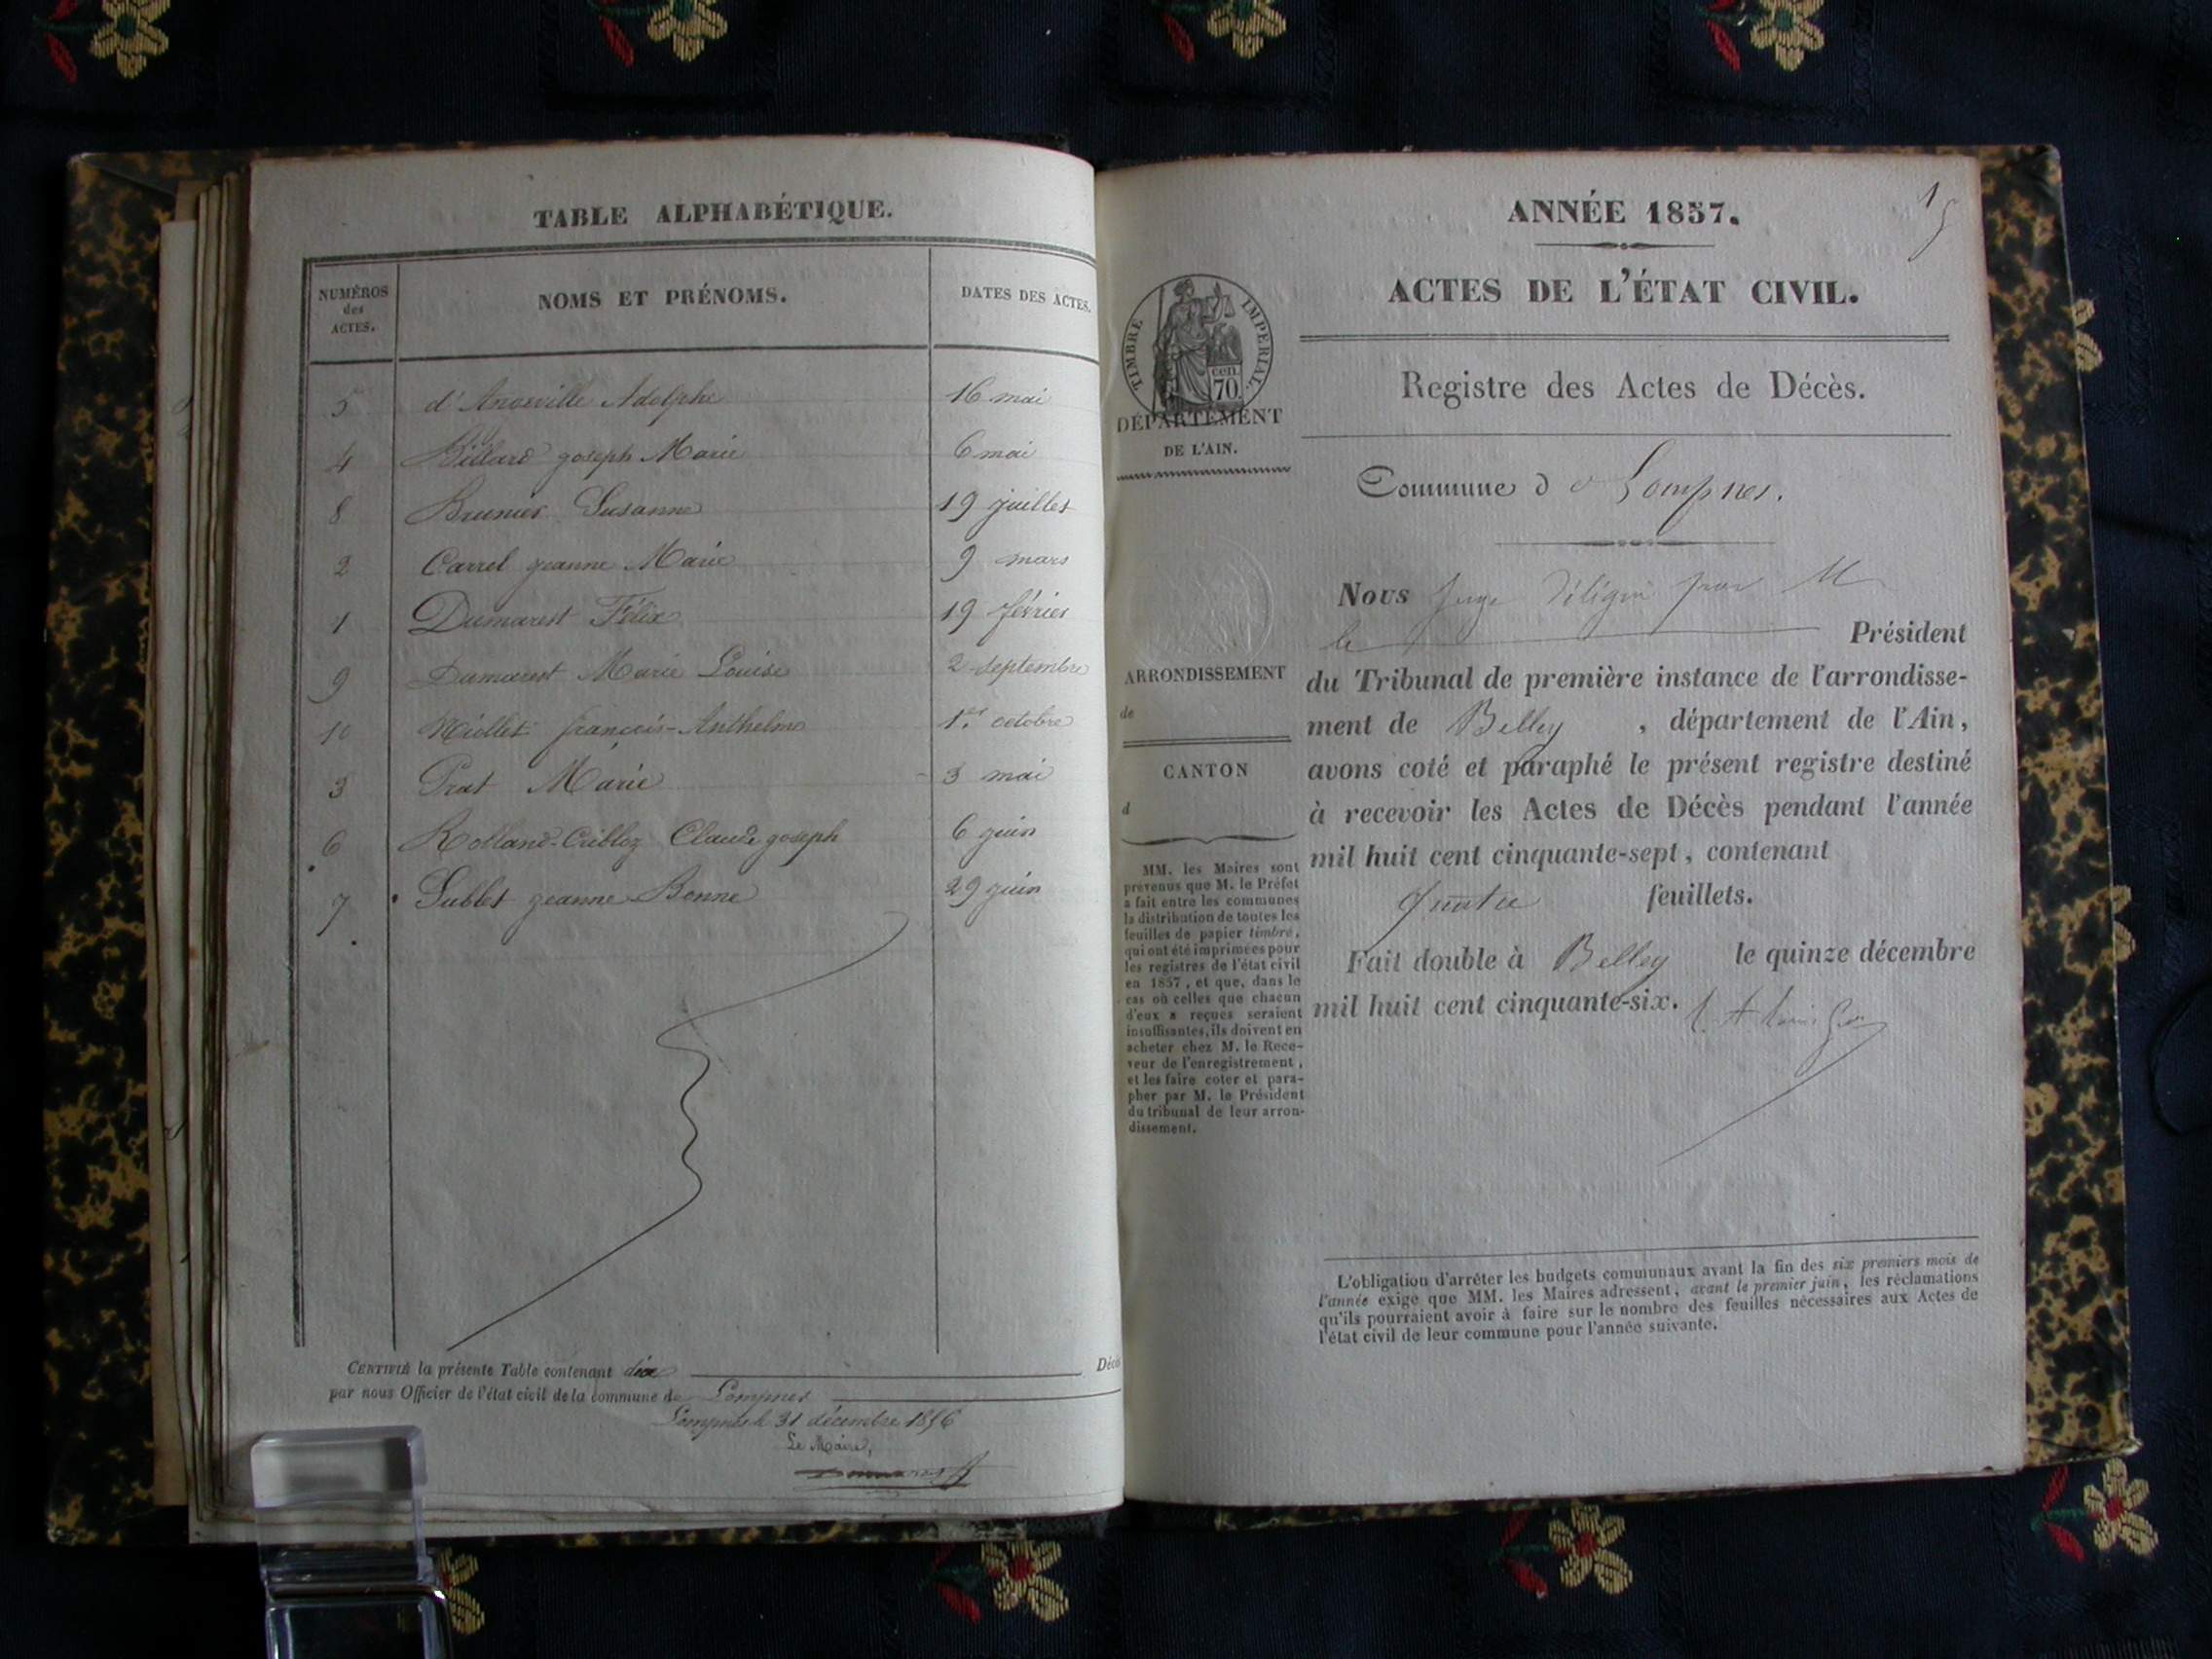 TABLE ALPHABÉTIQUE.
NUMÉROS des ACTES.
NOMS ET PRÉNOMS.
DATES DES ACTES.
5 d'Anoxville Adolphe 16 mai
4 Billard joseph Marie 6 mai
8 Brunier Susanne 19 juillet
2 Carrel jeanne Marie 9 mars
1 Dumarest Félix 19 février
9 Dumarest Marie Louise 2 septembre
10 Miollet françois-Anthelme 1er octobre
3 Prat Marie 3 mai
6 Rolland-Cribloz Claude joseph 6 juin
7 Sublet jeanne Bonne 29 juin
CERTIFIÉ la présente Table contenant dix Décès
par nous Officier de l'état civil de la commune de Lompnes
Lompnes le 31 décembre 1856
Le Maire,
1
ANNÉE 1857.
ACTES DE L'ÉTAT CIVIL.
TIMBRE IMPÉRIAL.
cen.
70.
DÉPARTEMENT
DE L'AIN.
Registre des Actes de Décès.
Commune d e Lompnes.
ARRONDISSEMENT
de
CANTON
d
MM. les Maires sont
prévenus que M. le Préfet
a fait entre les communes
la distribution de toutes les
feuilles de papier timbré,
qui ont été imprimées pour
les registres de l'état civil
en 1857, et que, dans le
cas où celles que chacun
d'eux a reçues seraient
insuffisantes, ils doivent en
acheter chez M. le Rece-
veur de l'enregistrement,
et les faire coter et para-
pher par M. le Président
du tribunal de leur arron-
dissement.
Nous Juge délégué par M
le Président
du Tribunal de première instance de l'arrondisse-
ment de Belley , département de l'Ain,
avons coté et paraphé le présent registre destiné
à recevoir les Actes de Décès pendant l'année
mil huit cent cinquante-sept, contenant
quatre feuillets.
Fait double à Belley le quinze décembre
mil huit cent cinquante-six.
L'obligation d'arrêter les budgets communaux avant la fin des six premiers mois de
l'année exige que MM. les Maires adressent, avant le premier juin, les réclamations
qu'ils pourraient avoir à faire sur le nombre des feuilles nécessaires aux Actes de
l'état civil de leur commune pour l'année suivante.